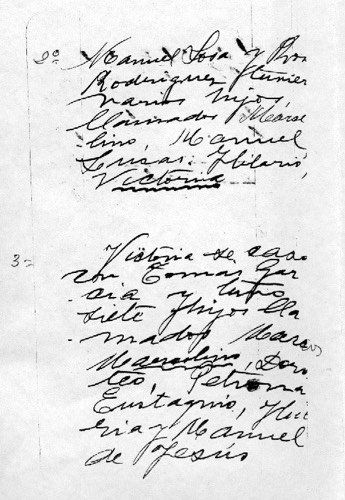 2º Manuel Sosa y Ros
Rodriguez tuvier
varios hijos
llamados Marse
lino, Manuel
Lucas. Hilario,
Victoria
3º Victoria se caso
con Tomas Gar
cia y tuvo
siete hijos lla
mados Marcos
Marcelino, Doro
teo, Petrona
Eustaquio, Hila
ria y Manuel
de Jesús